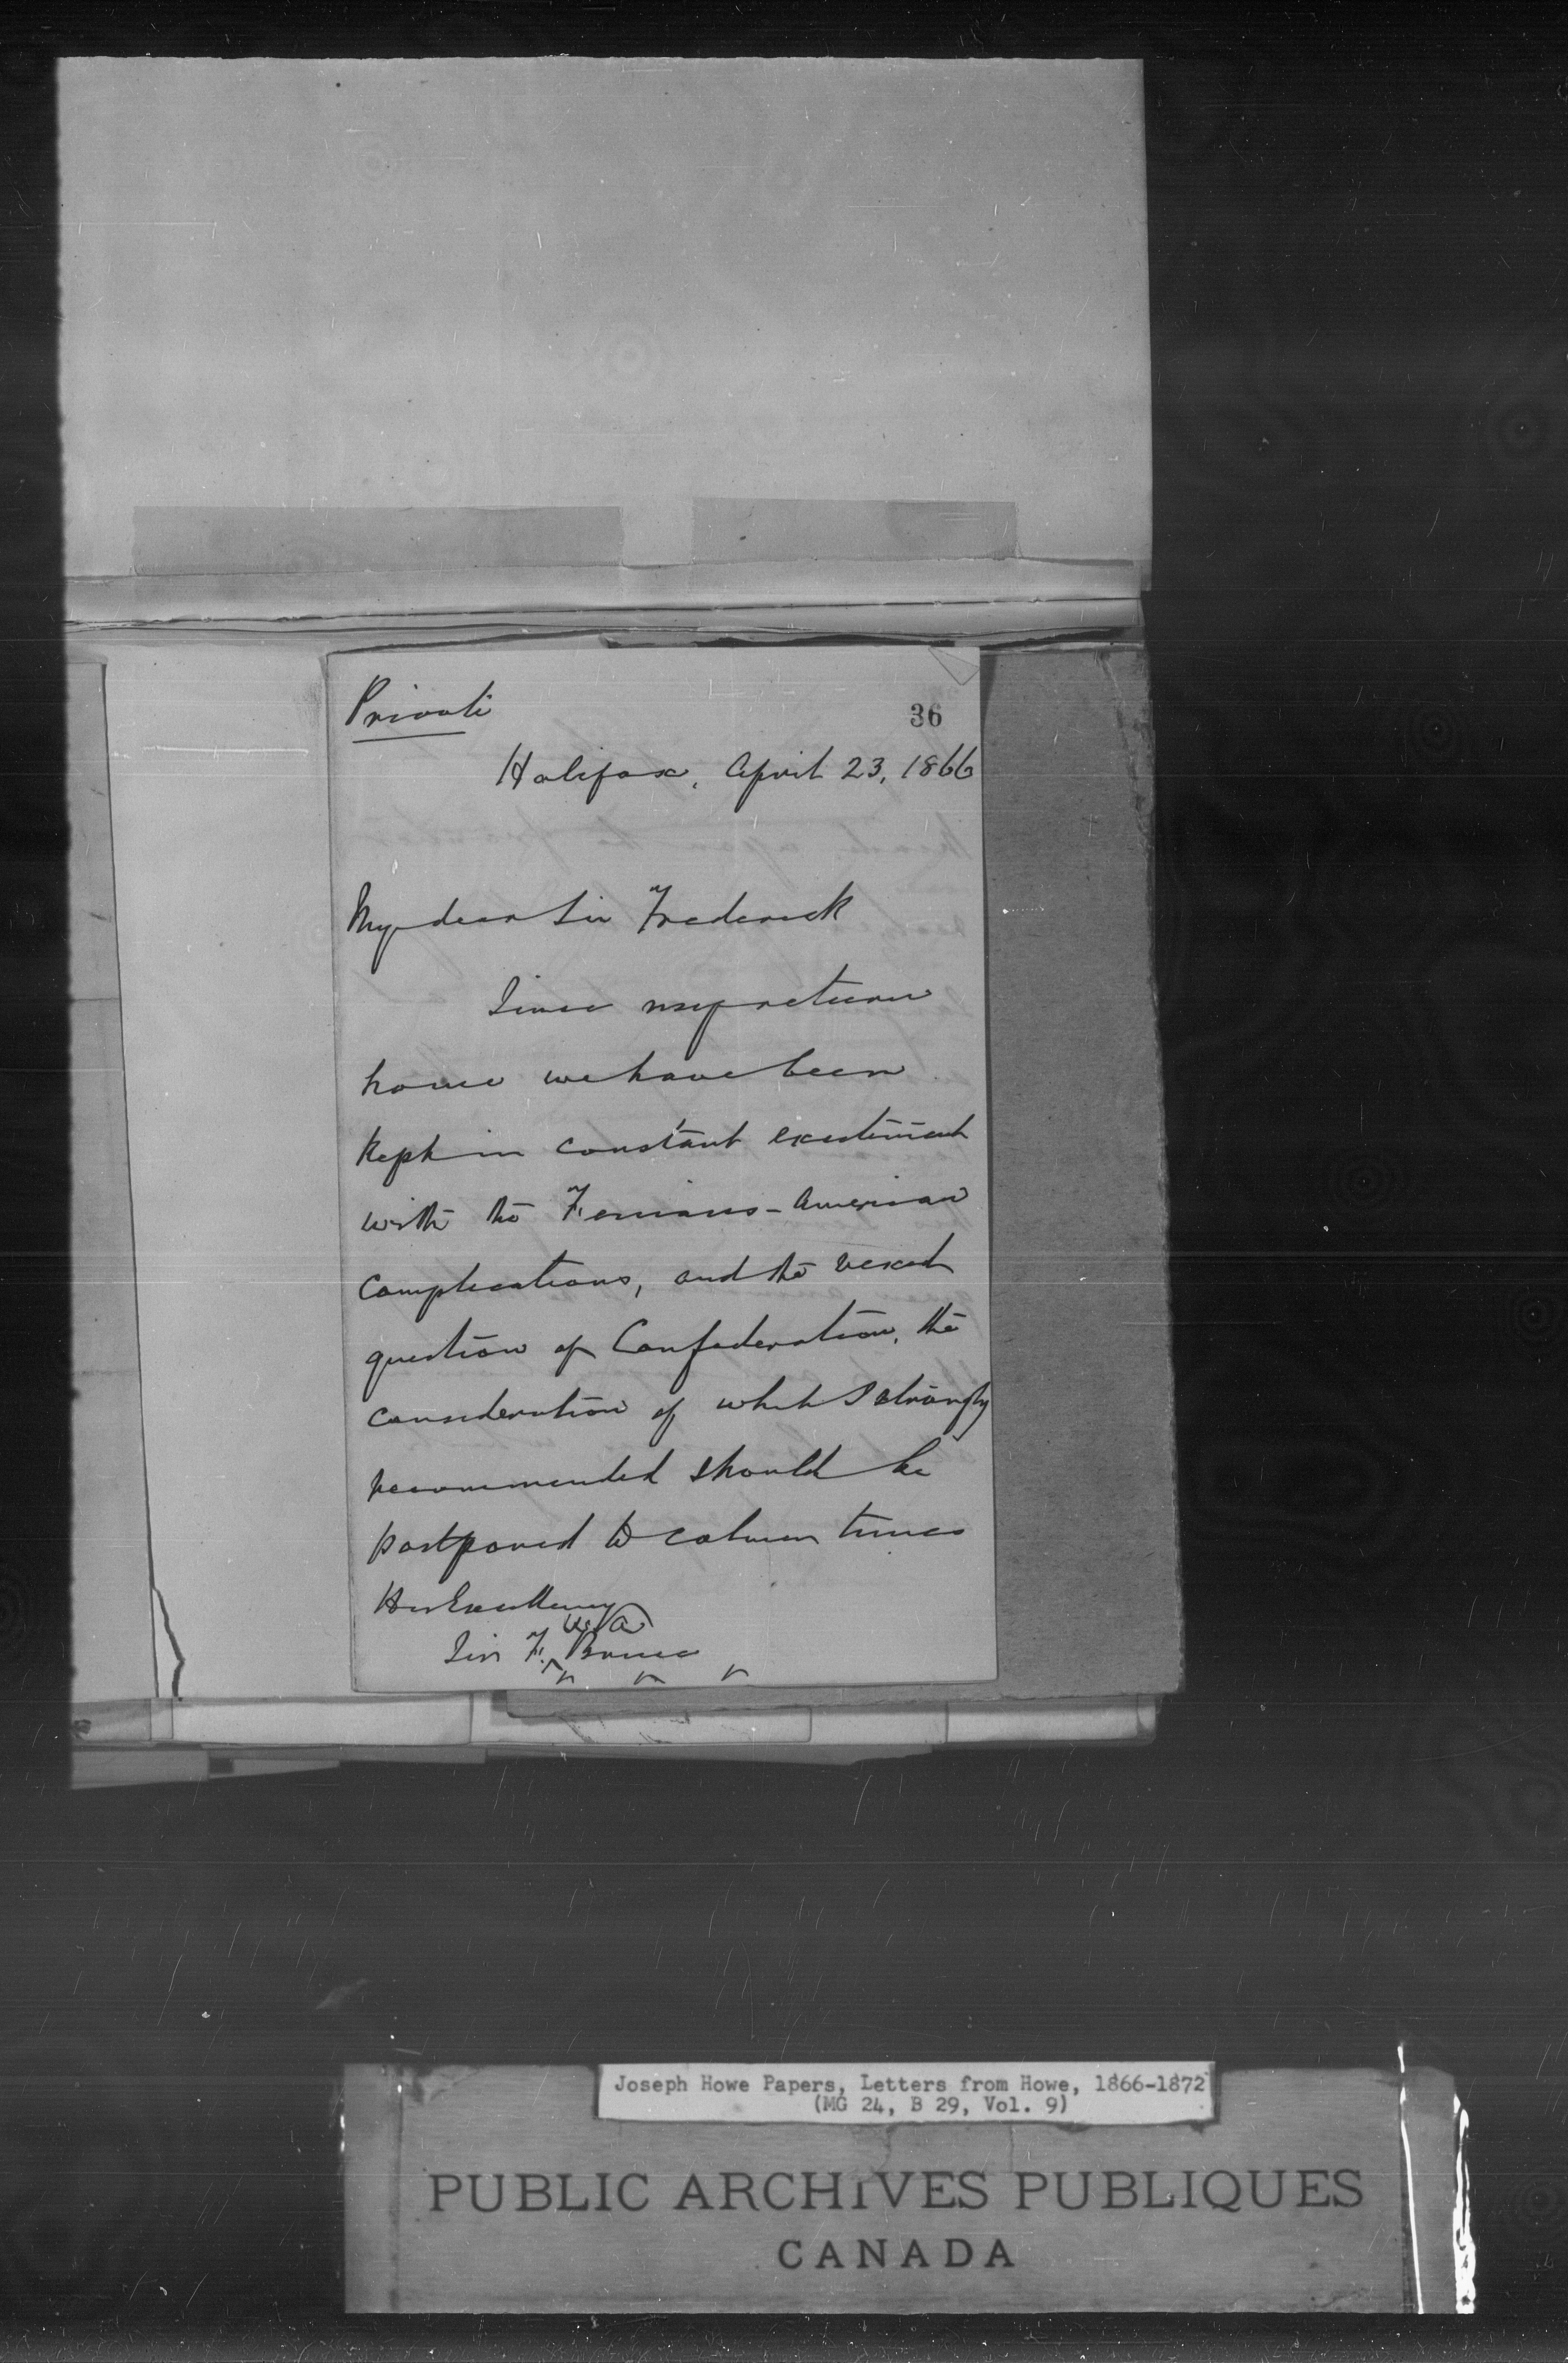 Private
36
Halifax, April 23, 1866
My dear Sir Frederick
Since my return
home we have been
kept in constant excitement
with the Fenians - American
complications, and the vexed
question of Confederation, the
consideration of which I strongly
recommended should be
postponed to calmer times
His Excellency
W A
Sir F. Bruce
Joseph Howe Papers, Letters from Howe, 1866-1872
(MG 24, B 29, Vol. 9)
PUBLIC ARCHIVES PUBLIQUES
CANADA